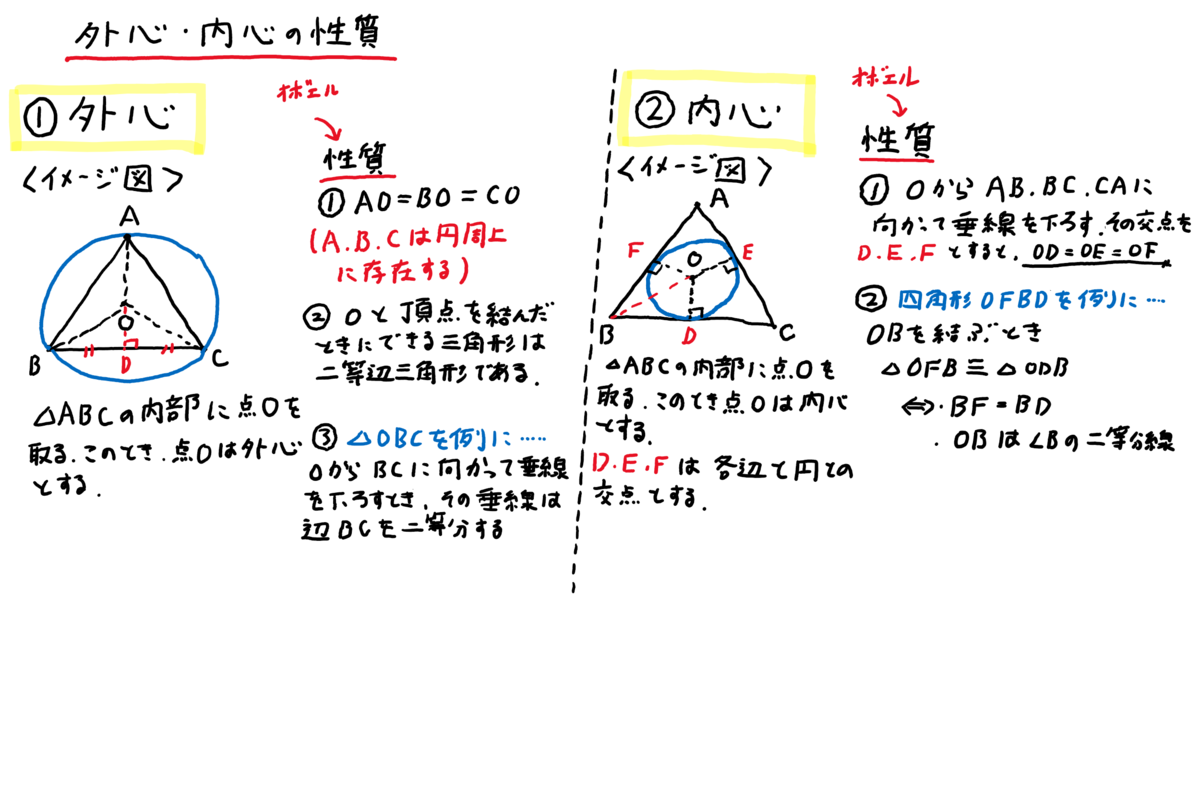 外心・内心の性質
①外心
<イメージ図>
A
O
B
D
C
△ABCの内部に点Oを
取る.このとき.点Oは外心
とする.
オボエル
性質
①AO=BO=CO
(A.B.Cは円周上
に存在する)
②Oと頂点を結んだ
ときにできる三角形は
二等辺三角形である.
③△OBCを例に……
OからBCに向かって垂線
を下ろすとき,その垂線は
辺BCを二等分する
②内心
<イメージ図>
A
F
O
E
B
D
C
△ABCの内部に点Oを
取る.このとき点Oは内心
とする.
D.E.Fは各辺と円との
交点とする.
オボエル
性質
①OからAB.BC.CAに
向かって垂線を下ろす.その交点を
D.E.Fとすると,OD=OE=OF
②四角形OFBDを例に……
OBを結ぶとき
△OFB≡△ODB
⇔・BF=BD
・OBは∠Bの二等分線